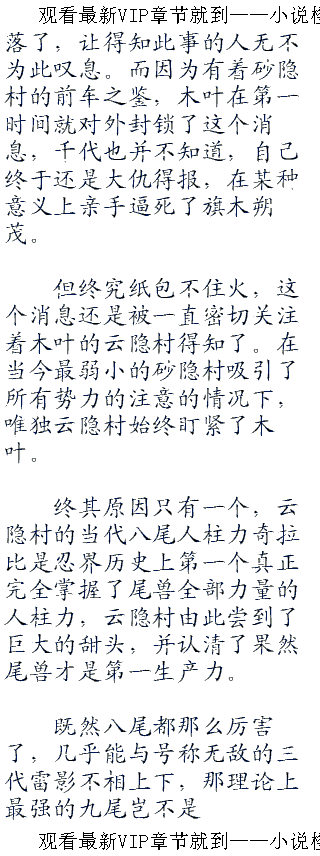 观看最新VIP章节就到——小说检
落了，让得知此事的人无不
为此叹息。而因为有着砂隐
村的前车之鉴，木叶在第一
时间就对外封锁了这个消
息，千代也并不知道，自己
终于还是大仇得报，在某种
意义上亲手逼死了旗木朔
茂。
但终究纸包不住火，这
个消息还是被一直密切关注
着木叶的云隐村得知了。在
当今最弱小的砂隐村吸引了
所有势力的注意的情况下，
唯独云隐村始终盯紧了木
叶。
终其原因只有一个，云
隐村的当代八尾人柱力奇拉
比是忍界历史上第一个真正
完全掌握了尾兽全部力量的
人柱力，云隐村由此尝到了
巨大的甜头，并认清了果然
尾兽才是第一生产力。
既然八尾都那么厉害
了，几乎能与号称无敌的三
代雷影不相上下，那理论上
最强的九尾岂不是
观看最新VIP章节就到——小说检